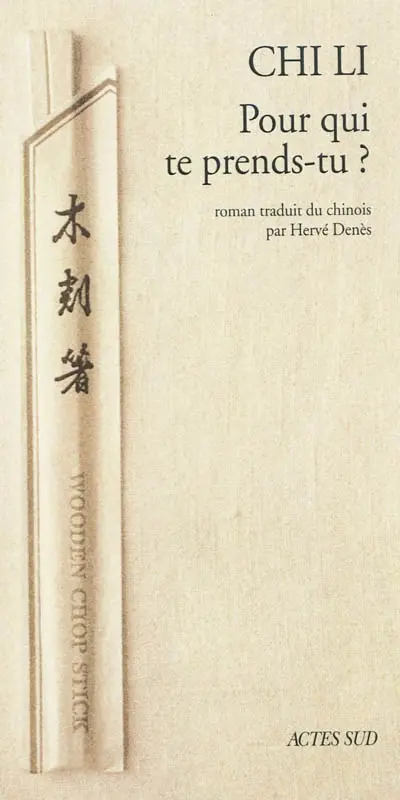 CHI LI
Pour qui
te prends-tu ?
roman traduit du chinois
par Hervé Denès
木
刻
箸
WOODEN CHOP STICK
ACTES SUD